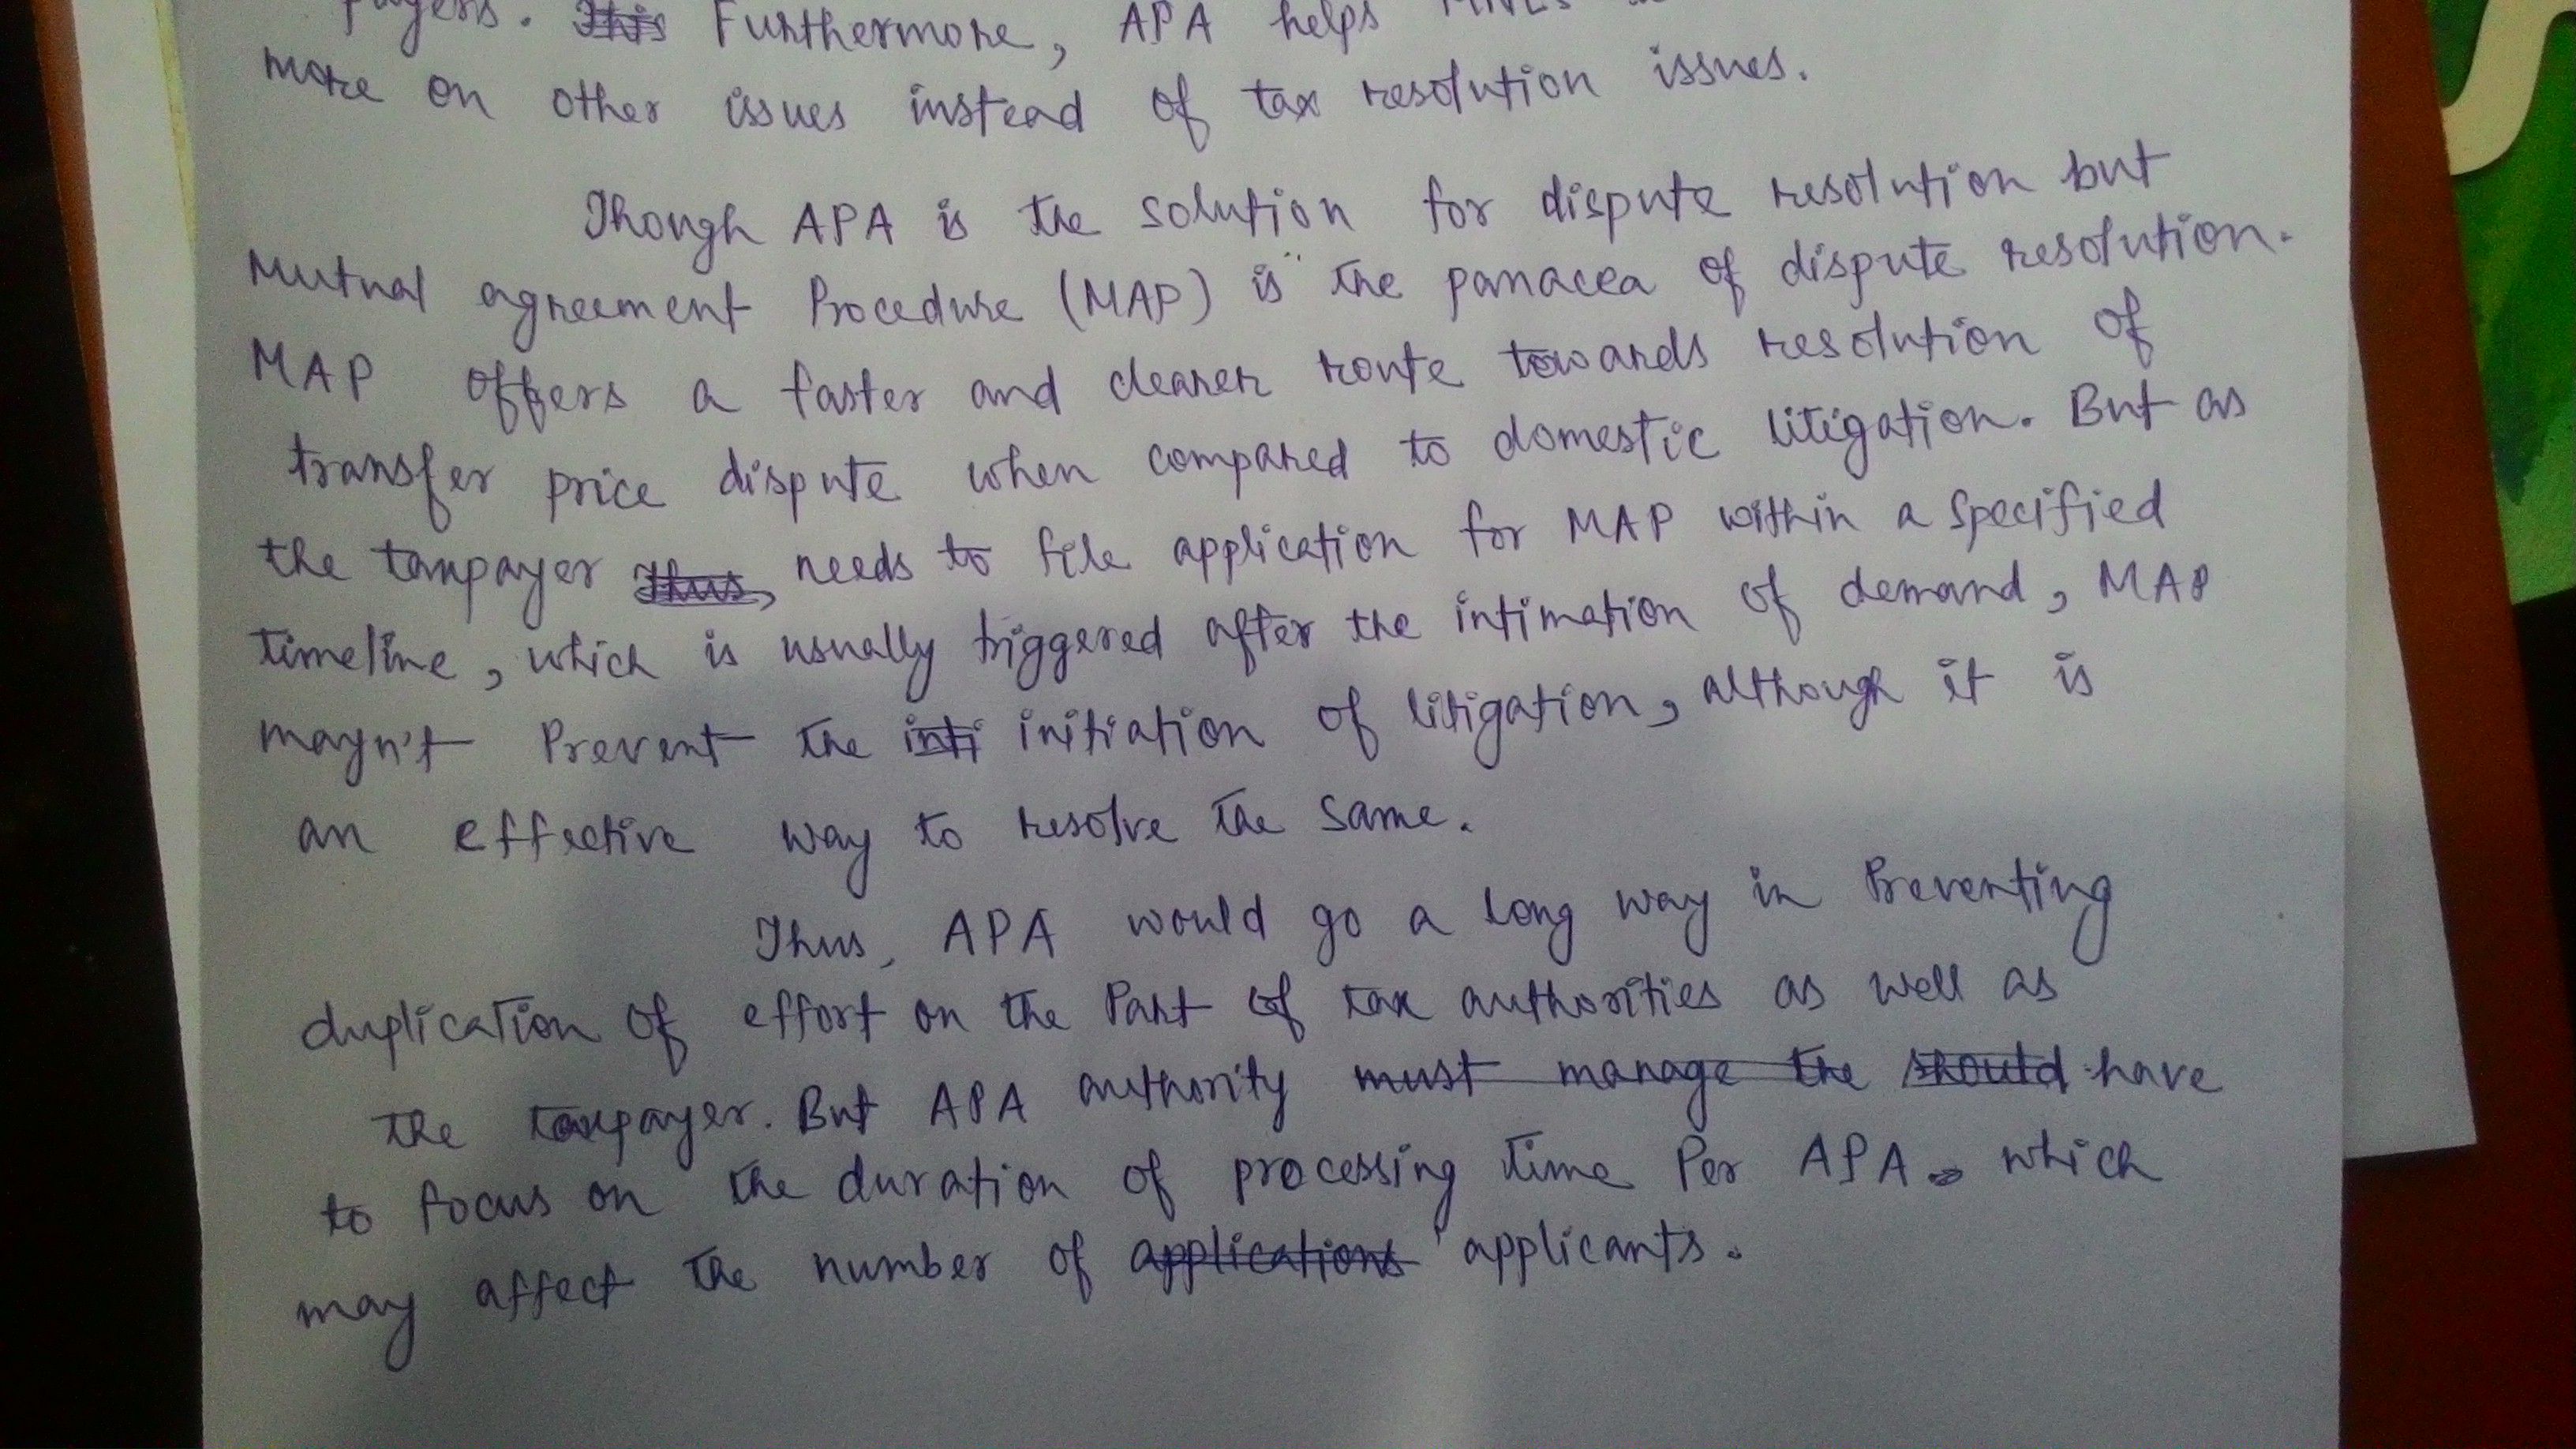 payers. This Furthermore, APA helps MNEs
more on other issues instead of tax resolution issues.
Though APA is the solution for dispute resolution but
Mutual agreement Procedure (MAP) is the panacea of dispute resolution.
MAP offers a faster and clearer route towards resolution of
transfer price dispute when compared to domestic litigation. But as
the taxpayer Thus, needs to file application for MAP within a specified
timeline, which is usually triggered after the intimation of demand, MAP
mayn't Prevent the inti initiation of litigation, although it is
an effective way to resolve the same.
Thus, APA would go a long way in Preventing
duplication of effort on the Part of tax authorities as well as
the taxpayer. But APA authority must manage the should have
to focus on the duration of processing time Per APA. which
may affect the number of applications applicants.